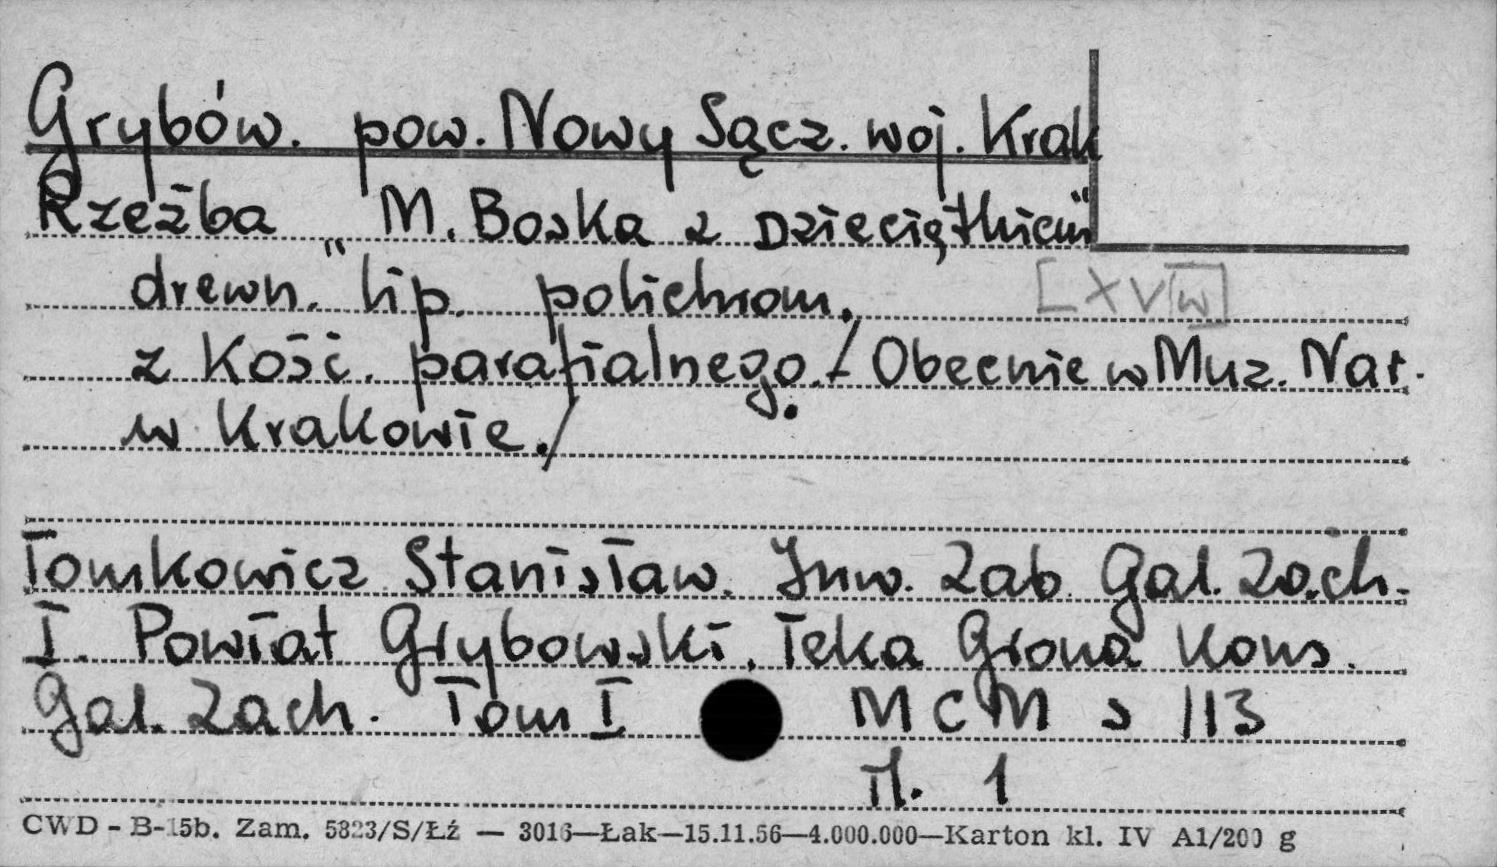 Grybów. pow. Nowy Sącz. woj. Krak
Rzeźba „M. Boska z Dzieciątkiem"
drewn. lip. polichrom. [XV w]
z Kość. parafialnego. / Obecnie w Muz. Nar.
w Krakowie. /
Tomkowicz Stanisław. Inw. Zab. Gal. Zach.
I. Powiat Grybowski. Teka Grona Kons.
Gal. Zach. Tom I MCM s 113
il. 1
CWD - B-15b. Zam. 5823/S/Łź — 3016—Łak—15.11.56—4.000.000—Karton kl. IV A1/200 g